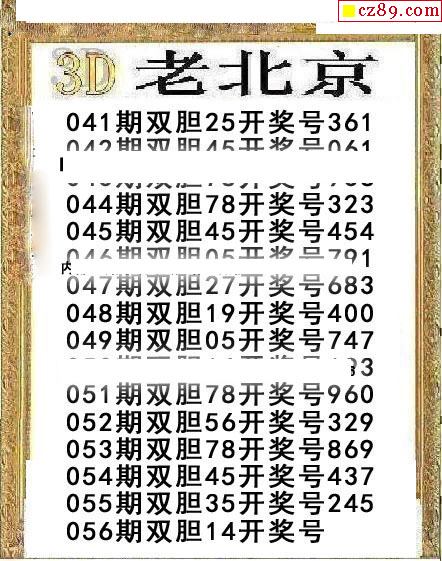 cz89.com
3D 老北京
041期双胆25开奖号361
042期双胆45开奖号061
044期双胆78开奖号323
045期双胆45开奖号454
046期双胆05开奖号791
047期双胆27开奖号683
048期双胆19开奖号400
049期双胆05开奖号747
051期双胆78开奖号960
052期双胆56开奖号329
053期双胆78开奖号869
054期双胆45开奖号437
055期双胆35开奖号245
056期双胆14开奖号